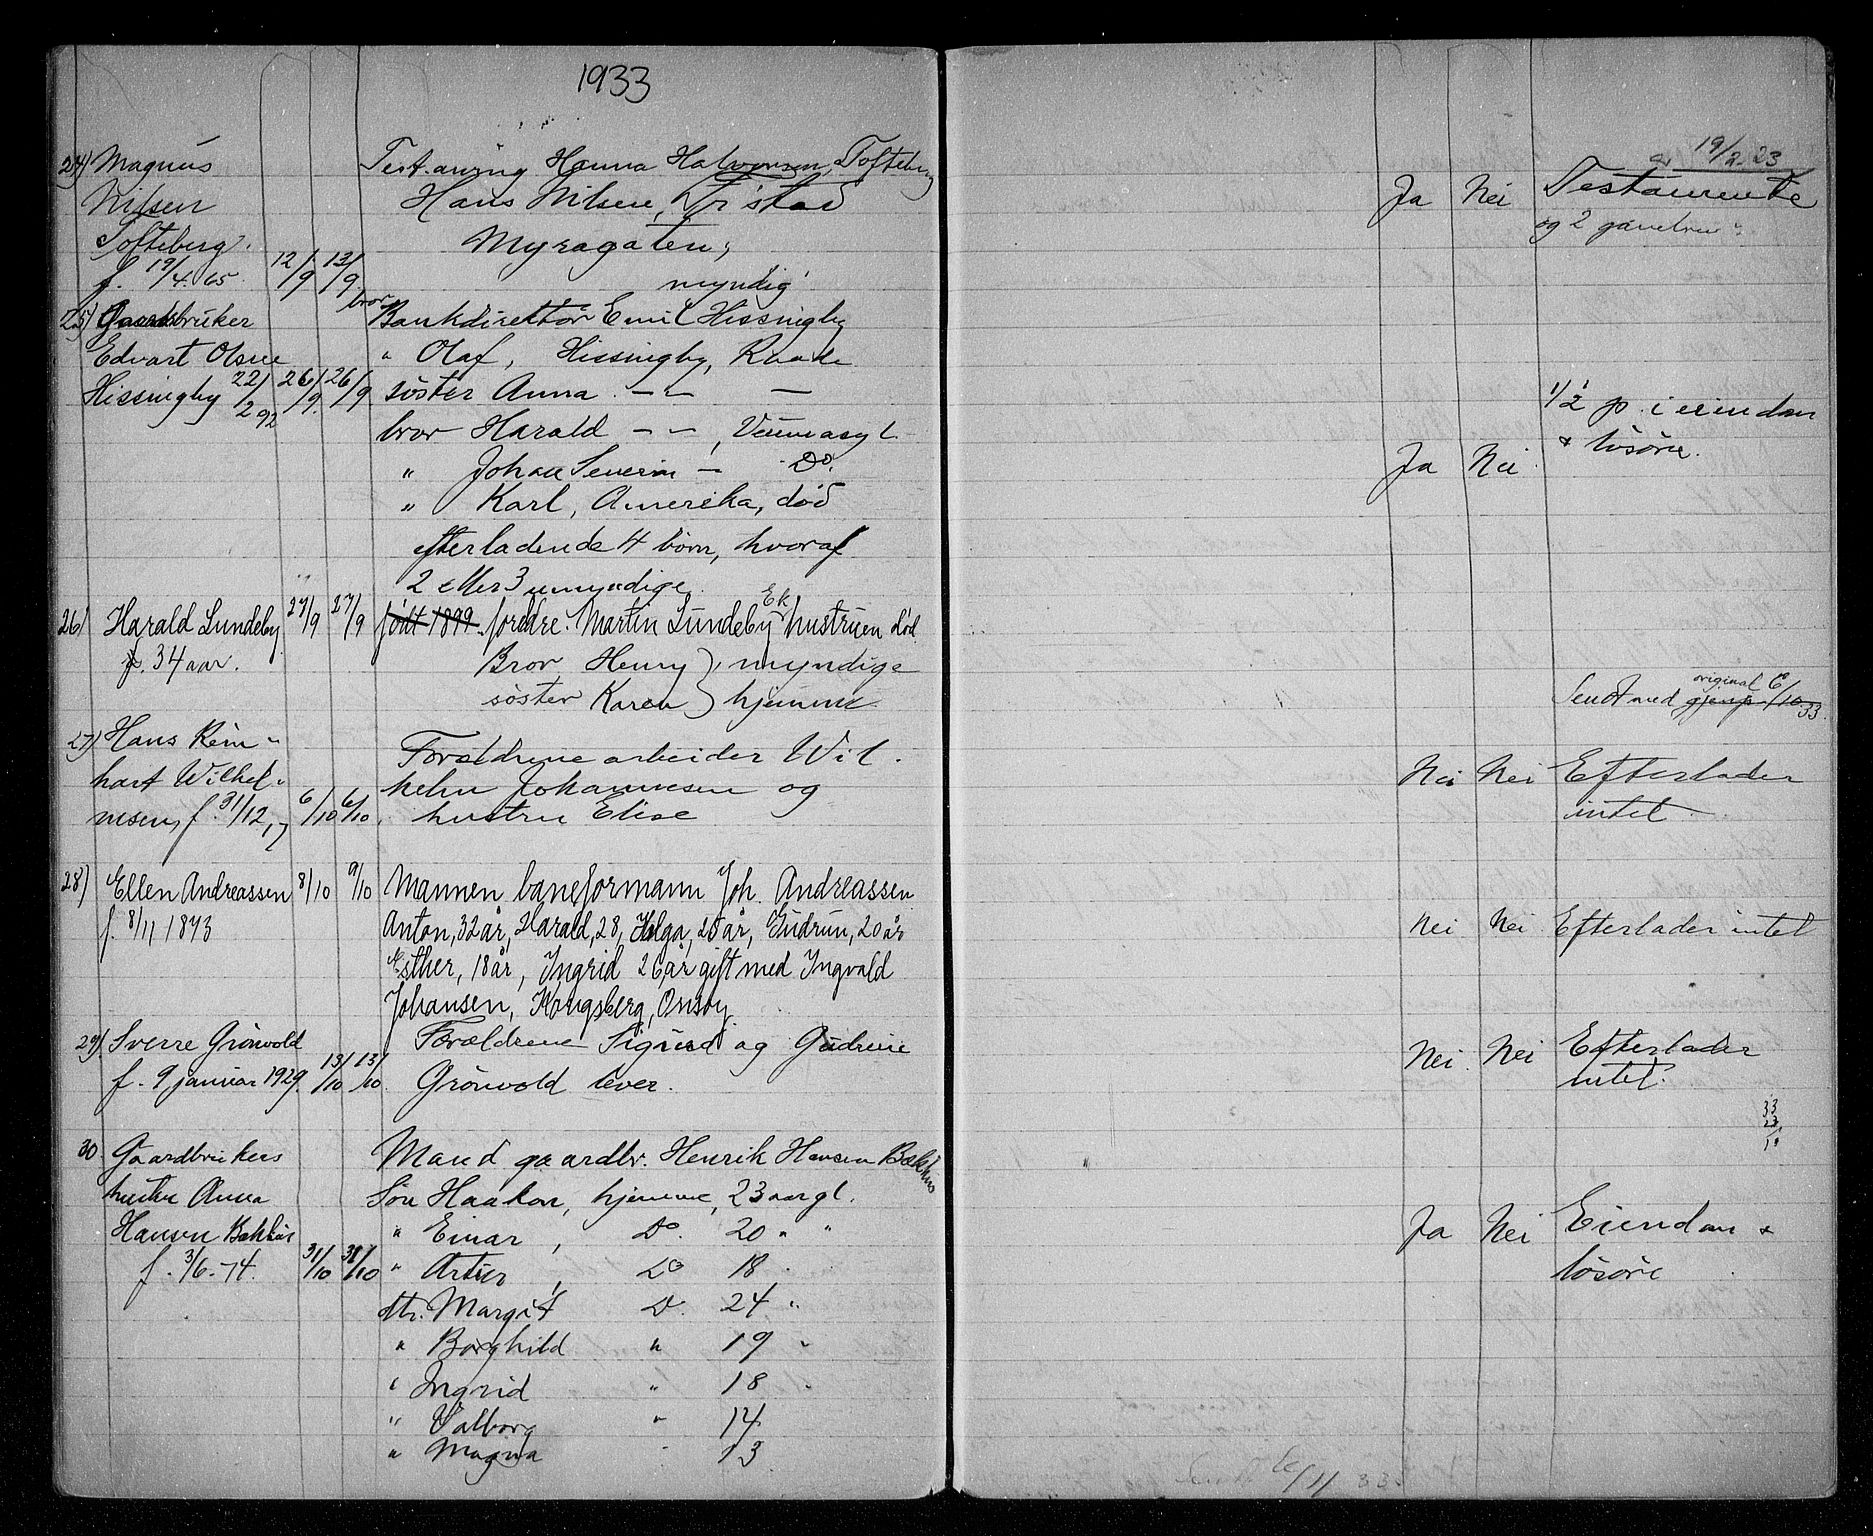 1933
24) Magnus
Nilsen
Tofteberg.
f. 19/4. 65. 12/9 13/9.
Test. arving Hanna Halvorsen, Tofteberg
Hans Nilsen,
Myragaten;
myndig
Ja Nei Testamente
19/2 23
og 2
25) Gaardbruker
Edvart Olsen
Hissingby 22/2 92 26/9. 26/9
bror Bankdirektör Emil Hissingby
" Olaf, Hissingby, Raade
söster Anna — —
bror Harald — —,
" Johan Severin — Do.
" Karl, Amerika, död
efterladende 4 börn, hvoraf
2 eller 3 umyndige.
Ja Nei
1/2 p. i eiendom
& lösöre.
26) Harald Lundeby 27/9 27/9
34 aar.
födt 1899. foreldre. Martin Lundeby Ek hustruen död
Bror Henry }, myndige
söster Karen } hjemme
Sendt med gjenp original 6/10 33.
27) Hans Rein-
hart Wilhel-
msen, f. 31/12, 17 6/10 6/10.
Forældrene arbeider Wil-
helm Johannesen og
hustru Elise
Nei Nei Efterlader
intet.
28) Ellen Andreassen 8/10 9/10
f. 8/11 1873
Mannen baneformann Joh. Andreassen
Anton, 32 år, Harald, 28, Helga, 25 år, Gudrun, 20 år
Esther, 18 år, Ingrid 26 år gift med Ingvald
Johansen, Kongsberg, Onsöy.
Nei Nei Efterlader intet
29) Sverre Grönvold
f. 9 januar 1929. 13/10 13/10.
Forældrene Sigurd og Gudrune
Grönvold lever.
Nei. Nei Efterlader
intet.
33
23
10
30. Gaardbrukers
hustru Anna
Hansen Bakhus
f. 3/6. -74. 31/10 31/10
Mand gaardbr. Henrik Hansen Bakhus
Sön Haakon, hjemme, 23 aar gl.
" Einar, Do. 20 " "
" Artur, Do 18
dtr. Margit D. 24 "
" Borghild " 19 "
" Ingrid " 18 "
" Valborg " 14
" Magna 13
Ja Nei Eiendom &
lösöre
Sendt 6/11 33.